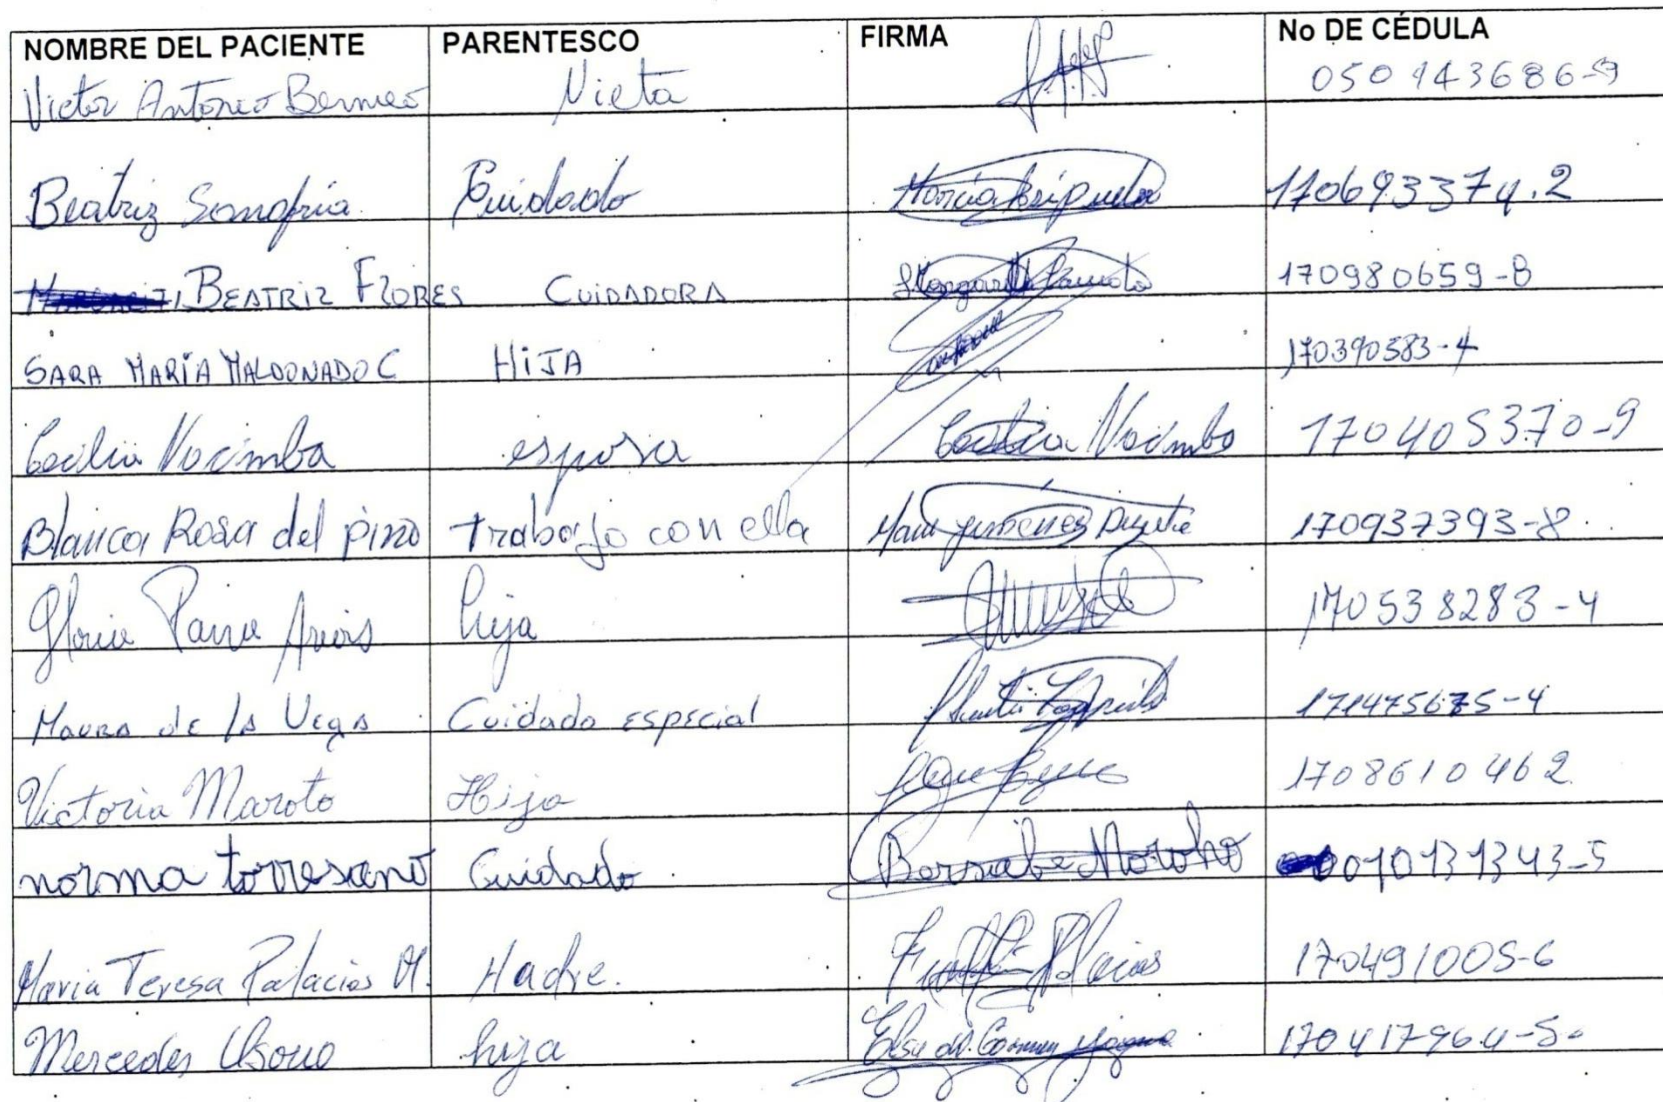 NOMBRE DEL PACIENTE PARENTESCO FIRMA No DE CÉDULA
Victor Antonio Bermeo Nieta 050143686-9
Beatriz Cuidado 170693374.2
BEATRIZ FLORES CUIDADORA 170980659-8
SARA MARÍA MALDONADO C HIJA 170390583-4
Cecilia Nacimba esposa Cecilia Nacimba 170405370-9
Blanca Rosa del pino trabajo con ella 170937393-8
Gloria hija 170538283-4
Maura de la Vega Cuidado especial 171475675-4
Victoria Maroto Hija 1708610462
norma torresano Cuidado Bersabe Morocho 010131343-5
Maria Teresa Palacios M. Madre. Palacios 170491005-6
Mercedes hija Elsa del Carmen 170417964-5